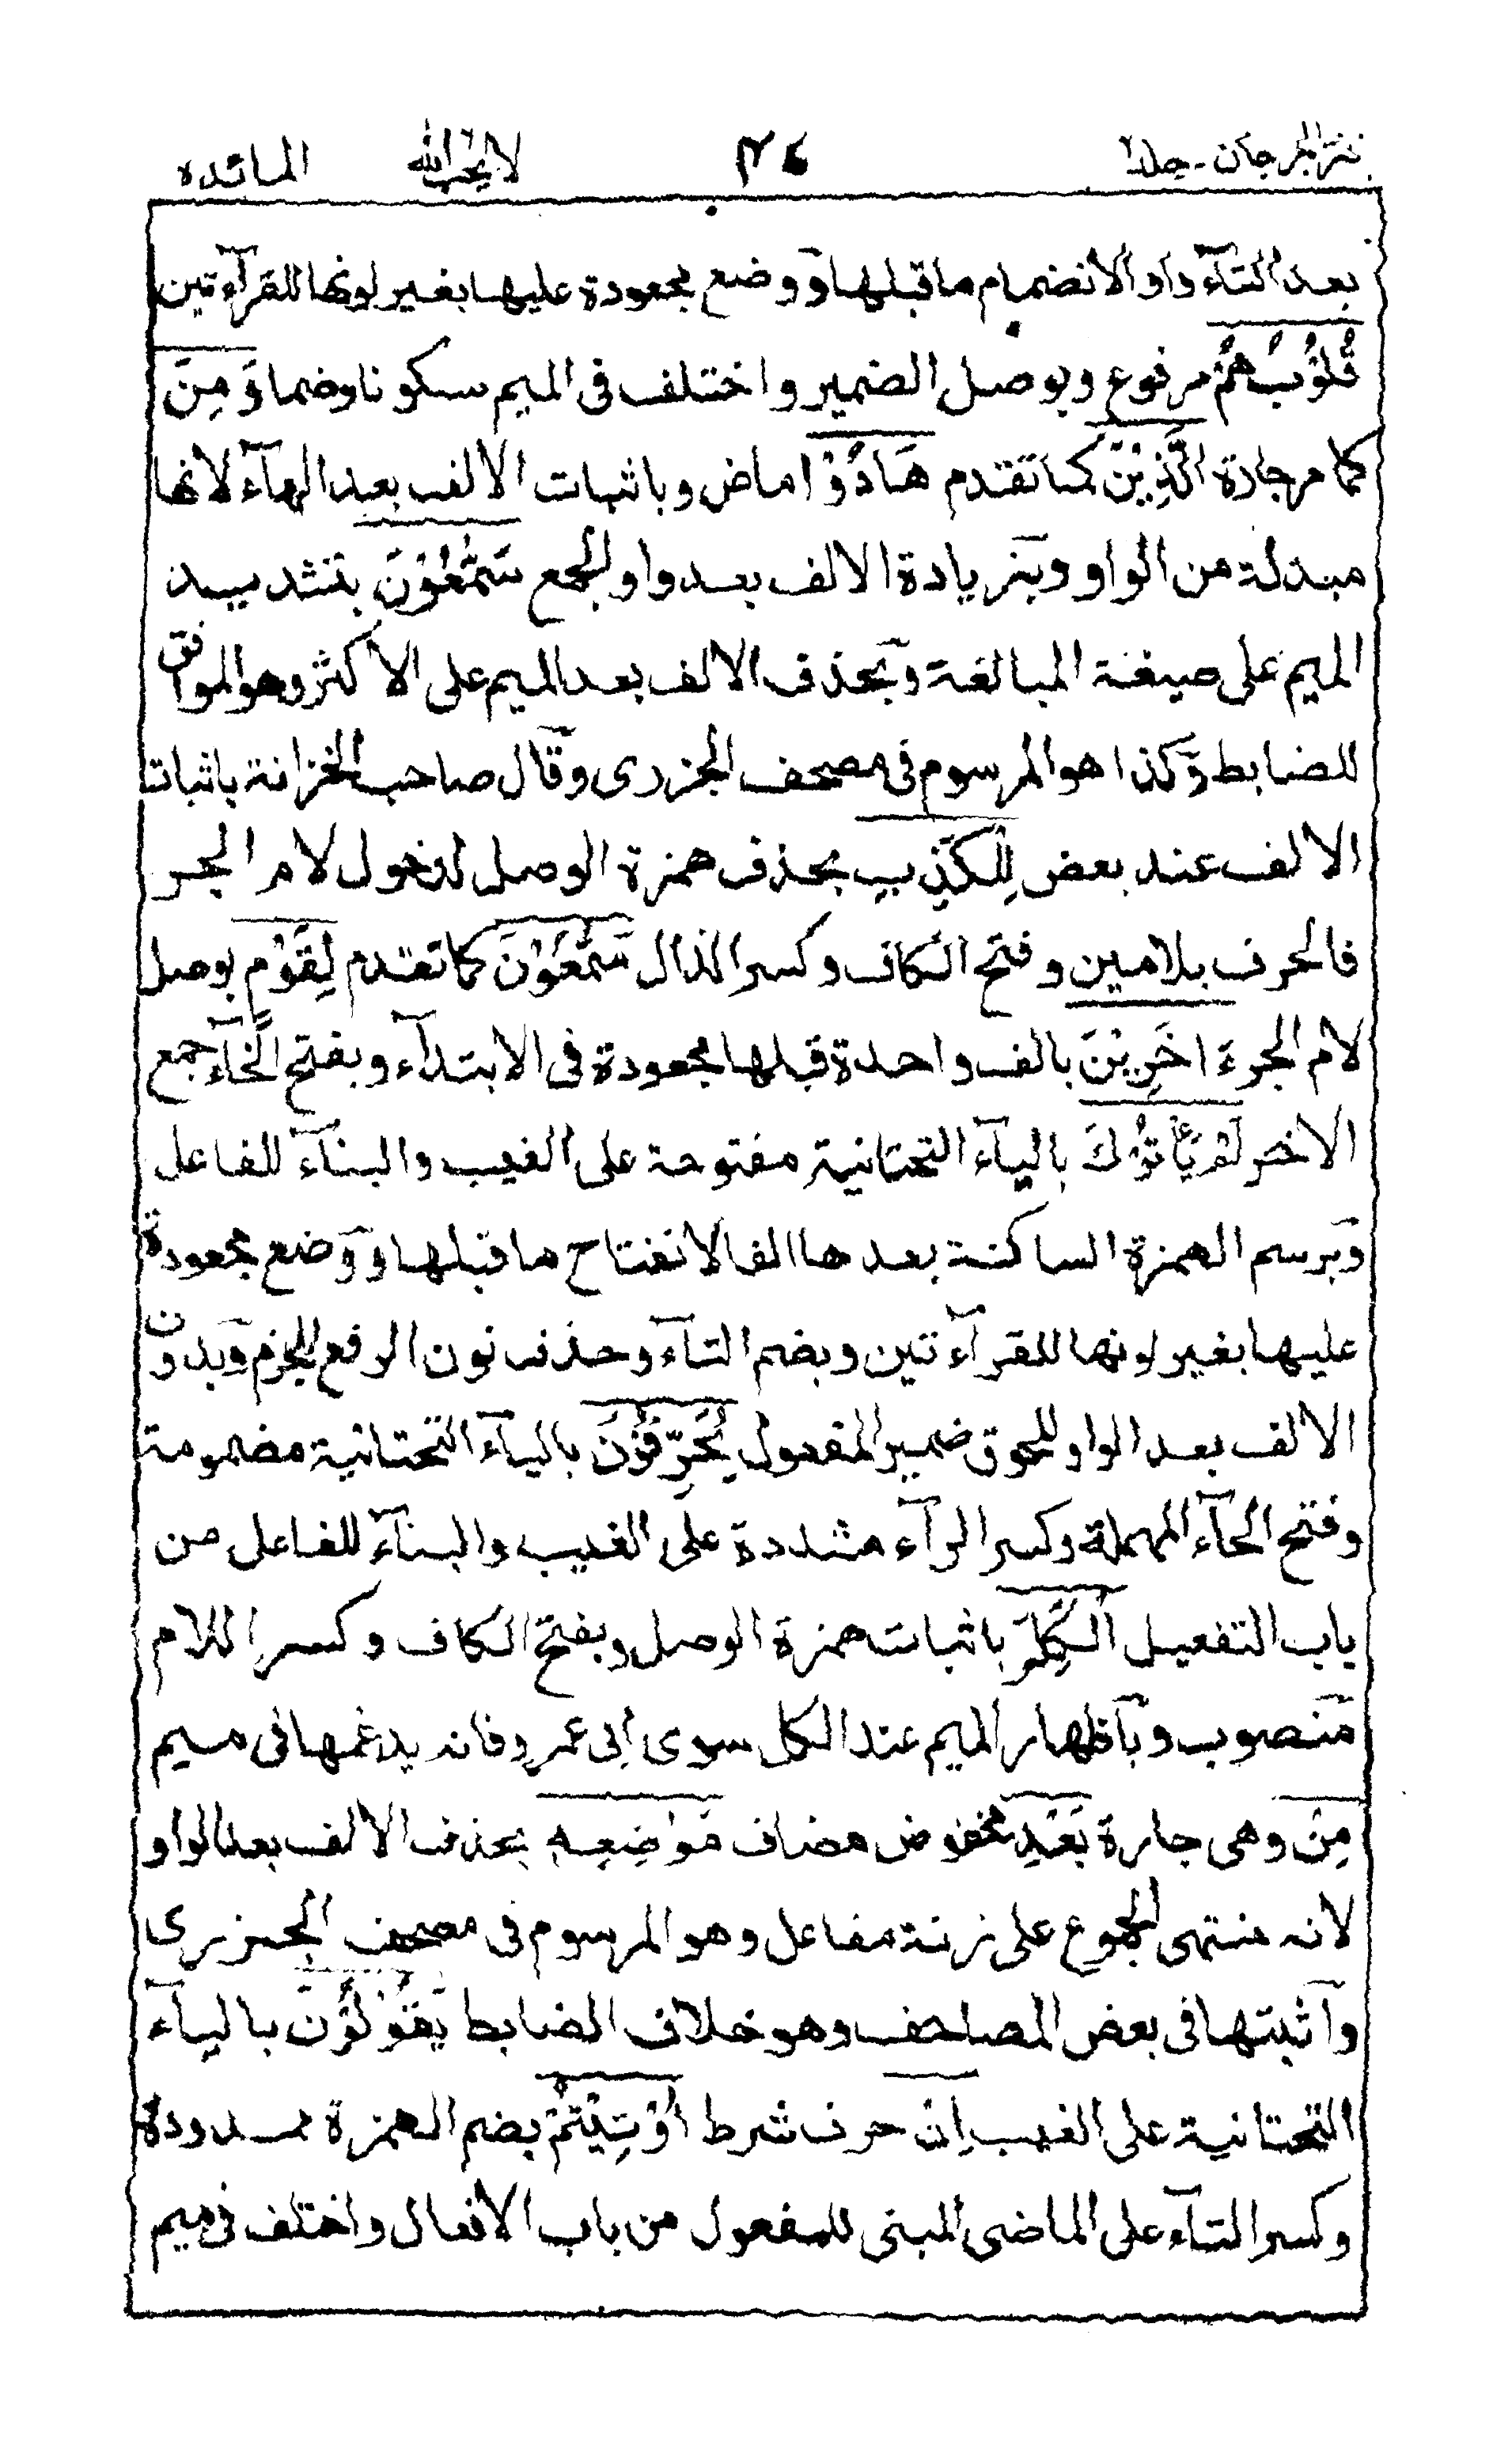 نثر المرجان - جلد٢ ٢٤ لا يحب الله المائده
بعد التآء واو الانضمام ما قبلها ووضع مجعودة عليها بغير لونها للقرآءتين
قُلُوْبُهُمْ مرفوع وبوصل الضمير واختلف فى الميم سكونا وضما وَمِنَ
كما مر جارة الَّذِيْنَ كما تقدم هَادُوْا ماض وباثبات الالف بعد الهآء لانها
مبدلة من الواو وبزيادة الالف بعد واو الجمع سَمّٰعُوْنَ بتشديد
الميم على صيغة المبالغة وبحذف الالف بعد الميم على الاكثر وهو الموافق
للضابط وكذا هو المرسوم فى مصحف الجزرى وقال صاحب الخزانة باثبات
الالف عند بعض لِلْكَذِبِ بحذف همزة الوصل لدخول لام الجر
فالحرف بلامين وفتح الكاف وكسر الذال سَمّٰعُوْنَ كما تقدم لِقَوْمٍ بوصل
لام الجر ءَاخَرِيْنَ بالف واحدة قبلها مجعودة فى الابتدآء وبفتح الخآء جمع
الاخر لَمْ يَأْتُوْكَ باليآء التحتانية مفتوحة على الغيب والبنآء للفاعل
وبرسم الهمزة الساكنة بعدها الفا لانفتاح ما قبلها ووضع مجعودة
عليها بغير لونها للقرآءتين وبضم التآء وحذف نون الرفع للجزم وبدون
الالف بعد الواو للحوق ضمير المفعول يُحَرِّفُوْنَ باليآء التحتانية مضمومة
وفتح الحآء المهملة وكسر الرآء مشددة على الغيب والبنآء للفاعل من
باب التفعيل الْكَلِمَ باثبات همزة الوصل وبفتح الكاف وكسر اللام
منصوب وباظهار الميم عند الكل سوى ابى عمرو فانه يدغمها فى ميم
مِنْ وهى جارة بَعْدِ مخفوض مضاف مَوَاضِعِهٖ بحذف الالف بعد الواو
لانه منتهى الجموع على زنة مفاعل وهو المرسوم فى مصحف الجزرى
وآثبتها فى بعض المصاحف وهو خلاف الضابط يَقُوْلُوْنَ باليآء
التحتانية على الغيب اِنْ حرف شرط اُوْتِيْتُمْ بضم الهمزة ممدودة
وكسر التآء على الماضى المبنى للمفعول من باب الافعال واختلف فى ميم